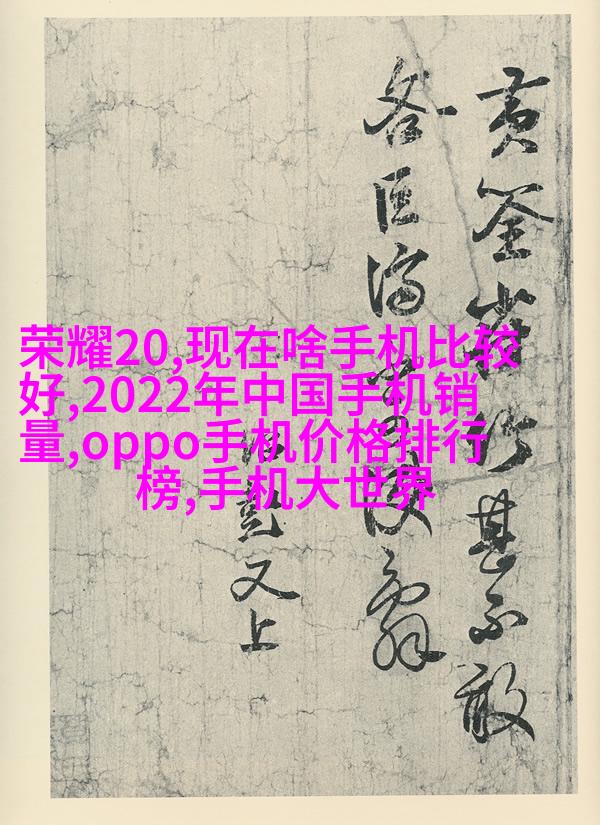 荣耀20,现在啥手机比较
好,2022年中国手机销
量,oppo手机价格排行
榜,手机大世界
黄筌竹甚不敢
又上